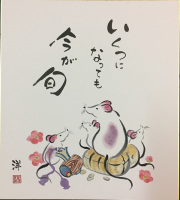 いくつに
なっても
今が旬
洋